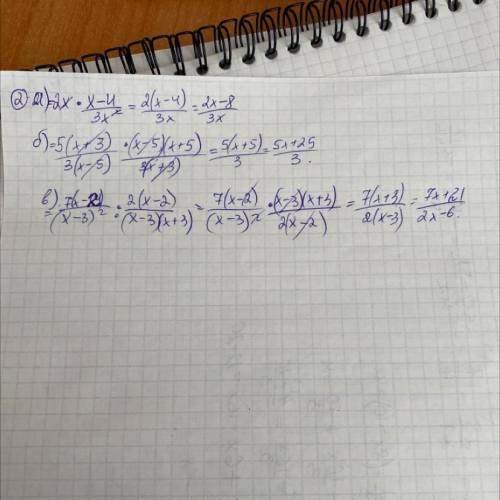 ② а) = 2x · (x-4)/(3x²) = 2(x-4)/(3x) = (2x-8)/(3x)
б) = 5(x+3)/(3(x-5)) · (x-5)(x+5)/(3(x+3)) = 5(x+5)/3 = (5x+25)/3.
в) = 7(x-2)/(x-3)² : 2(x-2)/((x-3)(x+3)) = 7(x-2)/(x-3)² · (x-3)(x+3)/(2(x-2)) = 7(x+3)/(2(x-3)) = (7x+21)/(2x-6).